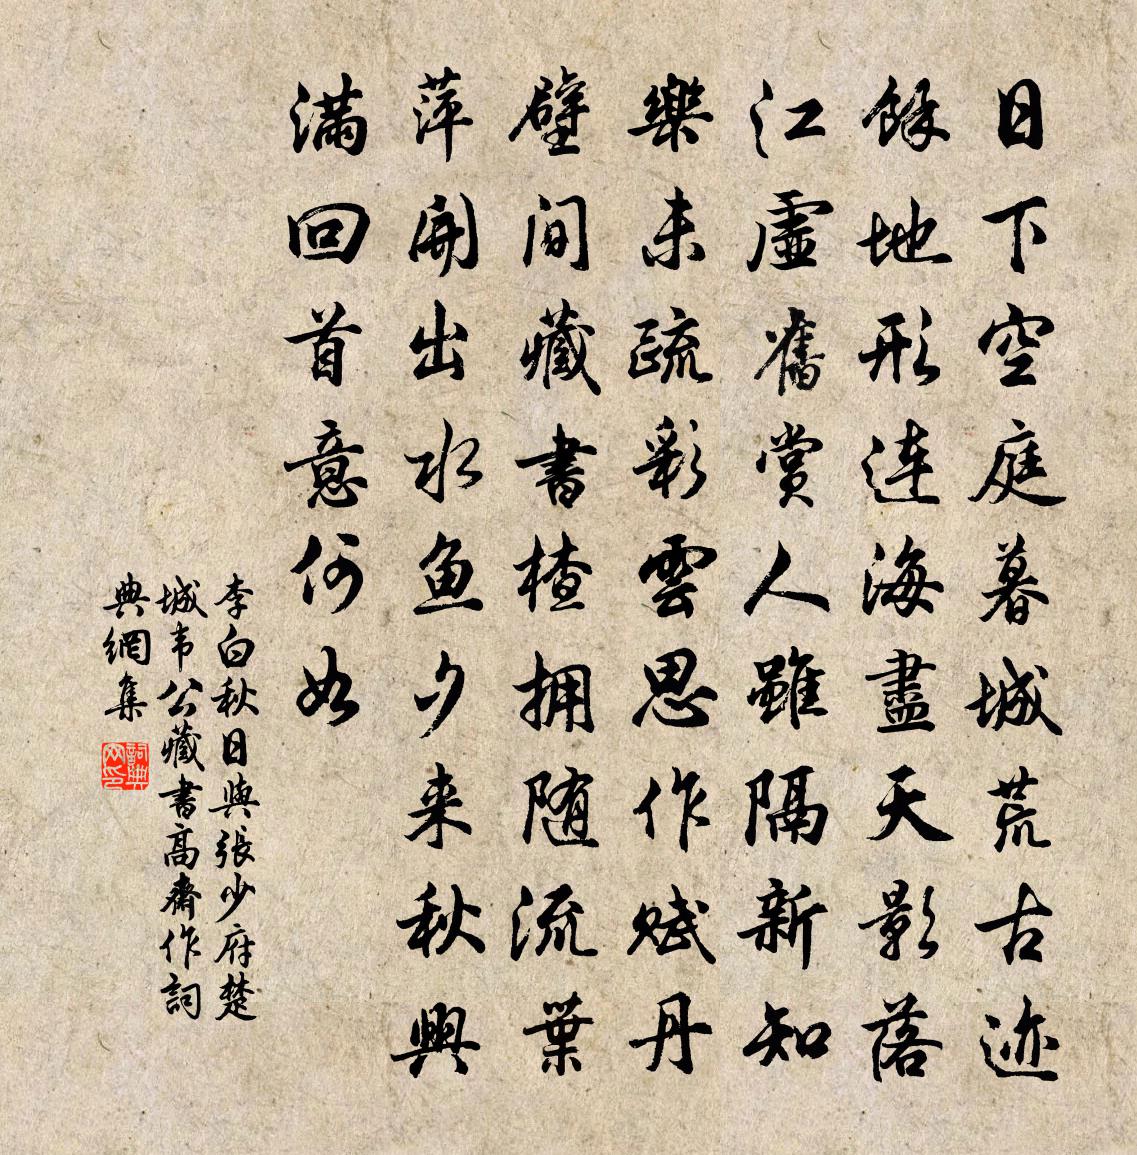 日下空庭暮城荒古迹
餘地形連海盡天影落
江虛舊賞人雖隔新知
樂未疏彩雲思作賦丹
壁間藏書楂拥随流葉
萍開出水魚夕来秋興
滿回首意何如
李白秋日與張少府楚
城韦公藏書高齋作詞
典網集
詞典网印